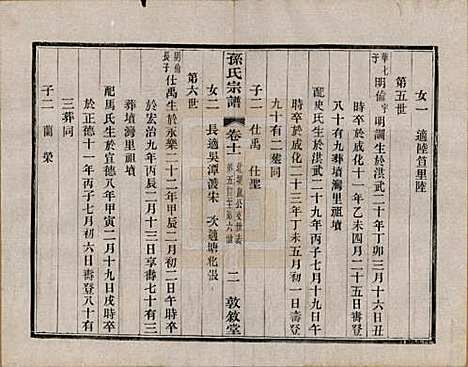 女一 適陸笪里陸
第五世
華七子 明倫 字明調生於洪武二十年丁卯三月十六日丑
時卒於成化十一年乙未四月二十五日寅時壽
八十有九葬墳灣里祖墳
配史氏生於洪武二十九年丙子四月十九日午
時卒於成化二十三年丁未五月初一日 壽
九十有二葬同
子二 仕禹 仕聖
女二 長適吳潭渡朱 次適塘化張
孫氏宗譜 卷十一 第五世至第六世 二 敦敘堂
第六世
明倫長子 仕禹生於永樂二十二年甲辰二月初二日午時
卒於宏治九年丙辰二月十三日享壽七十有三
葬墳灣里祖墳
配馬氏生於宣德八年甲寅二月十九日戌時卒
於正德十一年丙子七月初六日壽登八十有
三葬同
子二 蘭 榮